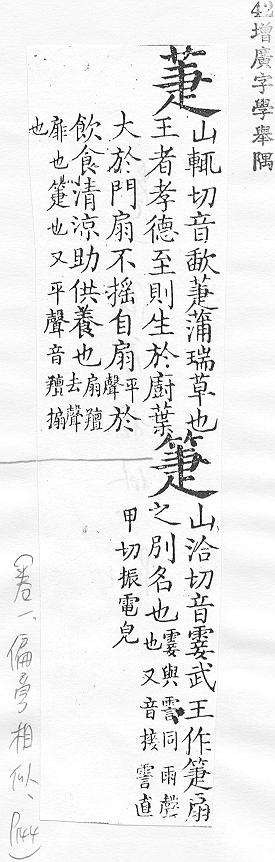 42增廣字學舉隅
萐山輒切音歃萐蒲瑞草也
王者孝德至則生於廚葉
大於門扇不搖自扇平聲於
飲食清涼助供養也扇羶去聲
扉也箑也又平聲音羶搧
也
箑山洽切音霎武王作箑扇
之別名也霎與霅同雨聲
也又音接霅直
甲切振電皃
(卷一、偏旁相似、P144)